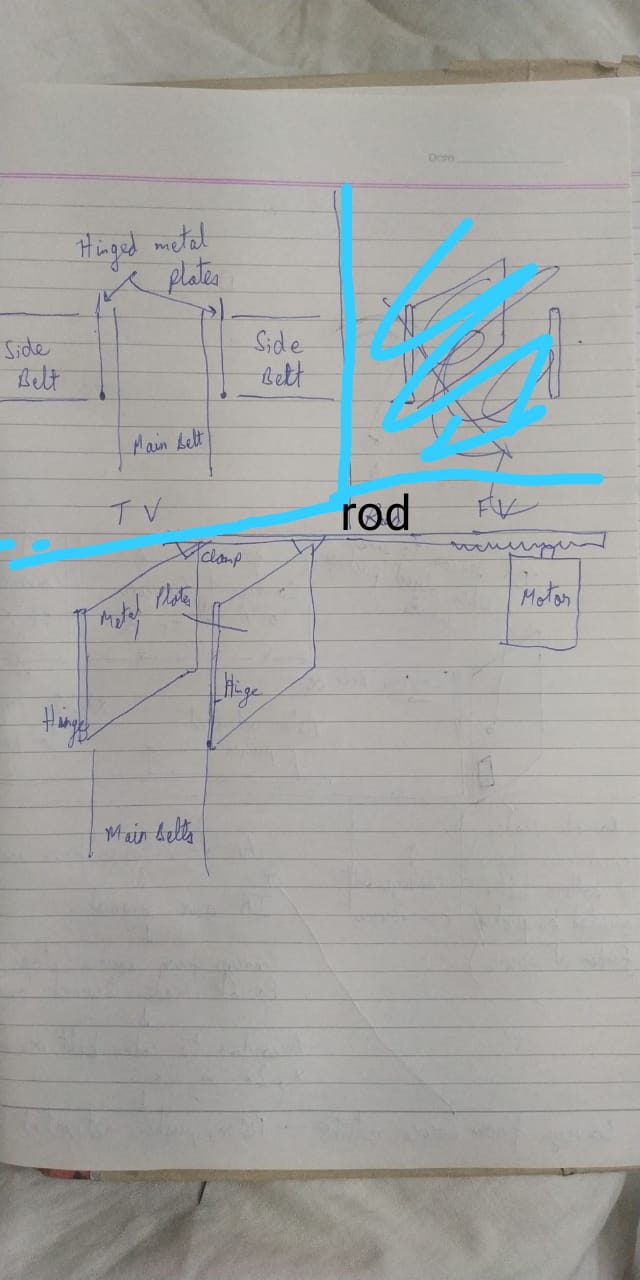 Date
Hinged metal
plates
Side
Belt
Side
Belt
Main Belt
T V
F V
rod
Clamp
Metal Plates
Motor
Hinge
Hinge
Main Belts